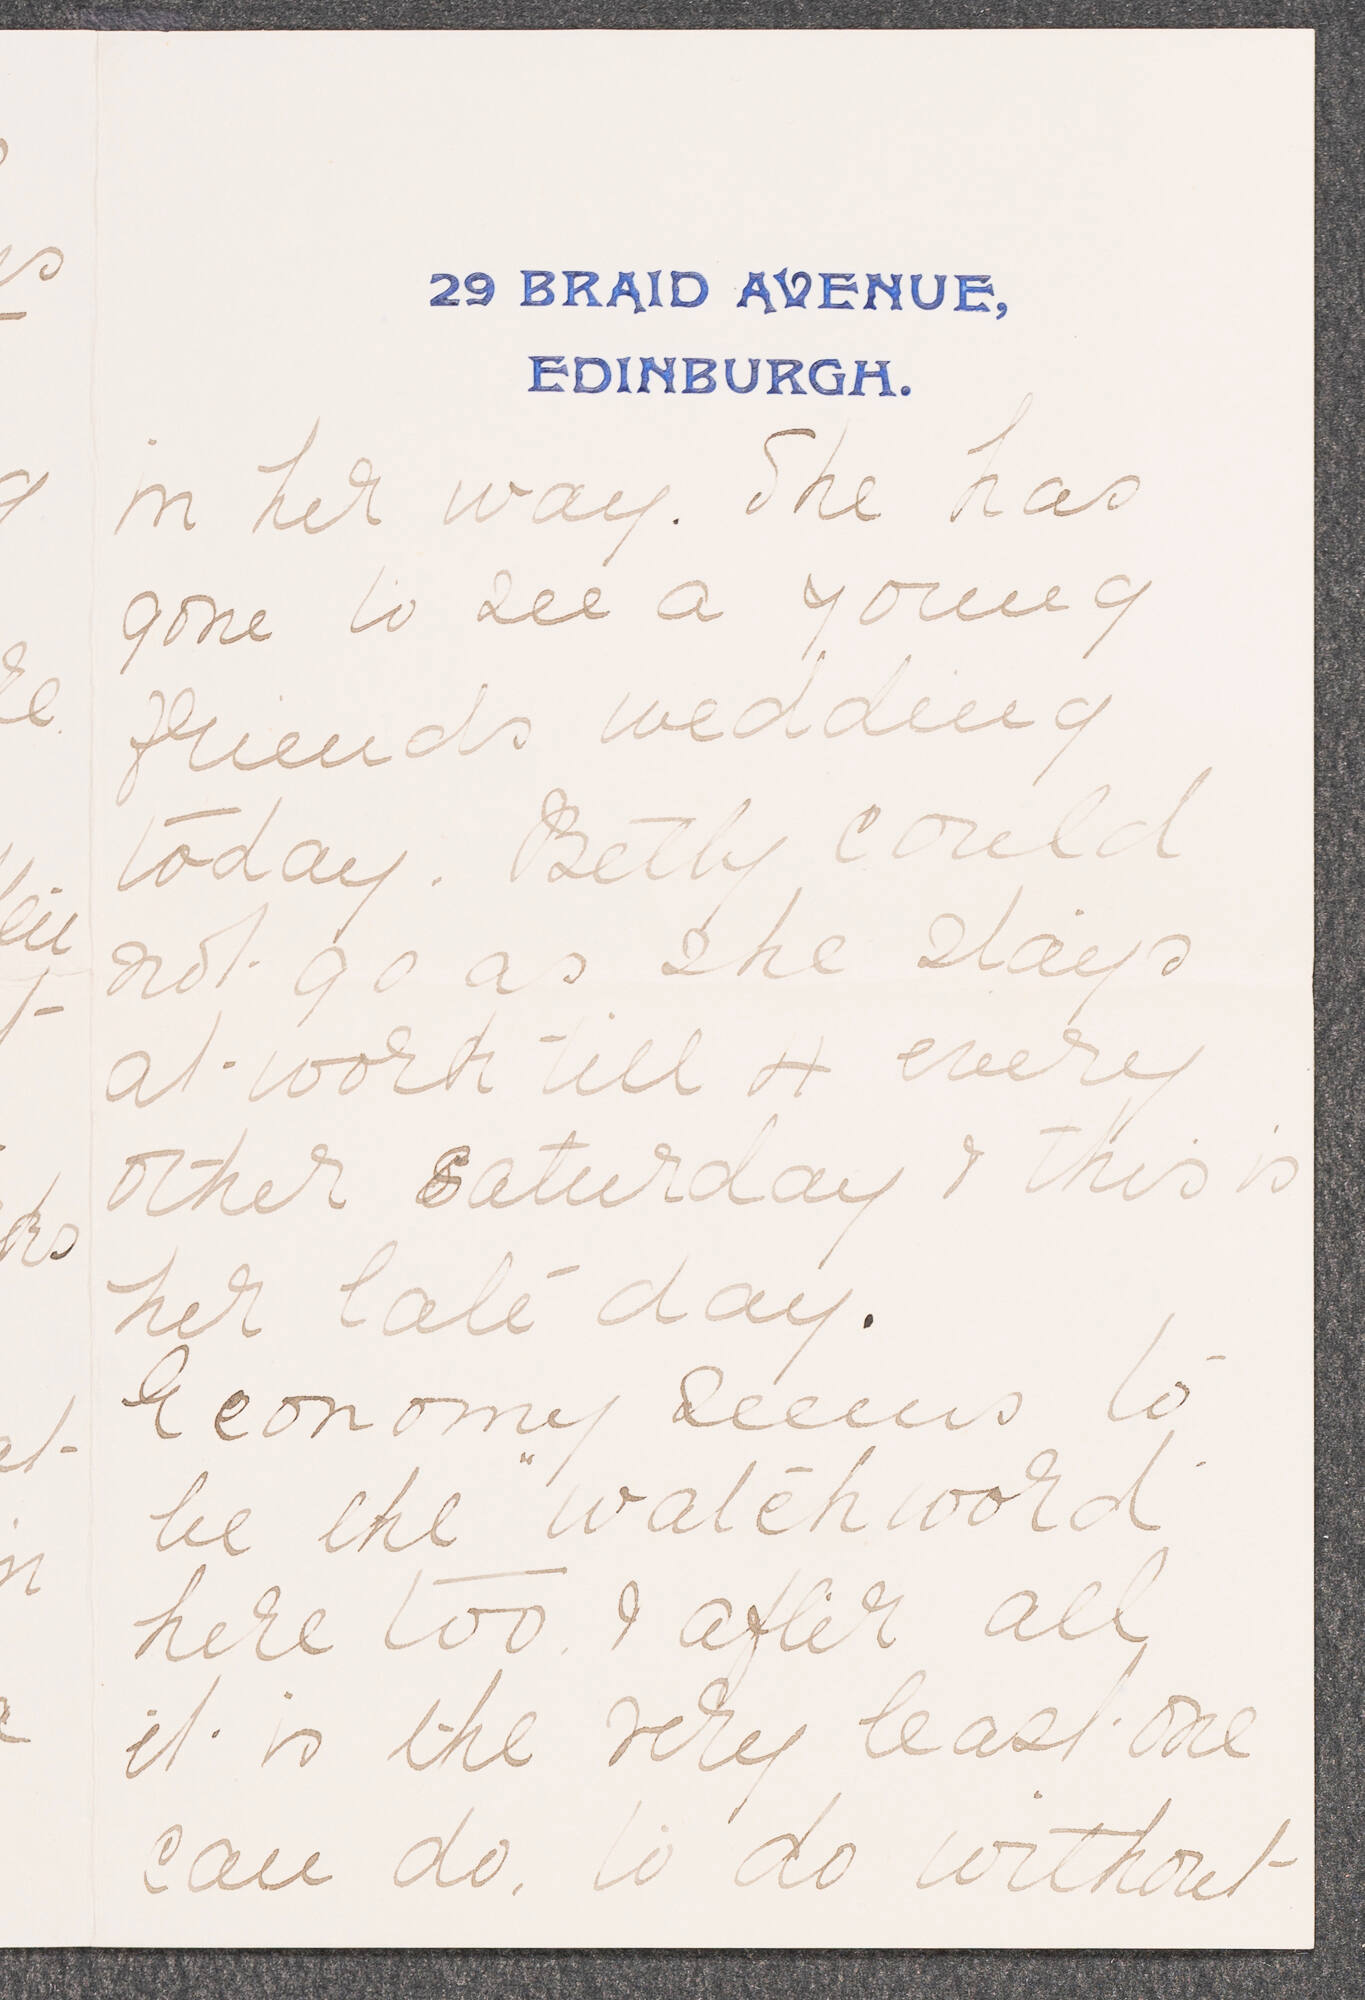 29 BRAID AVENUE,
EDINBURGH.
in her way. She has
gone to see a young
friends wedding
today. Betty could
not go as she stays
at work till 4 every
other Saturday & this is
her late day.
Economy seems to
be the "watchword"
here too. & after all
it is the very least one
can do, to do without